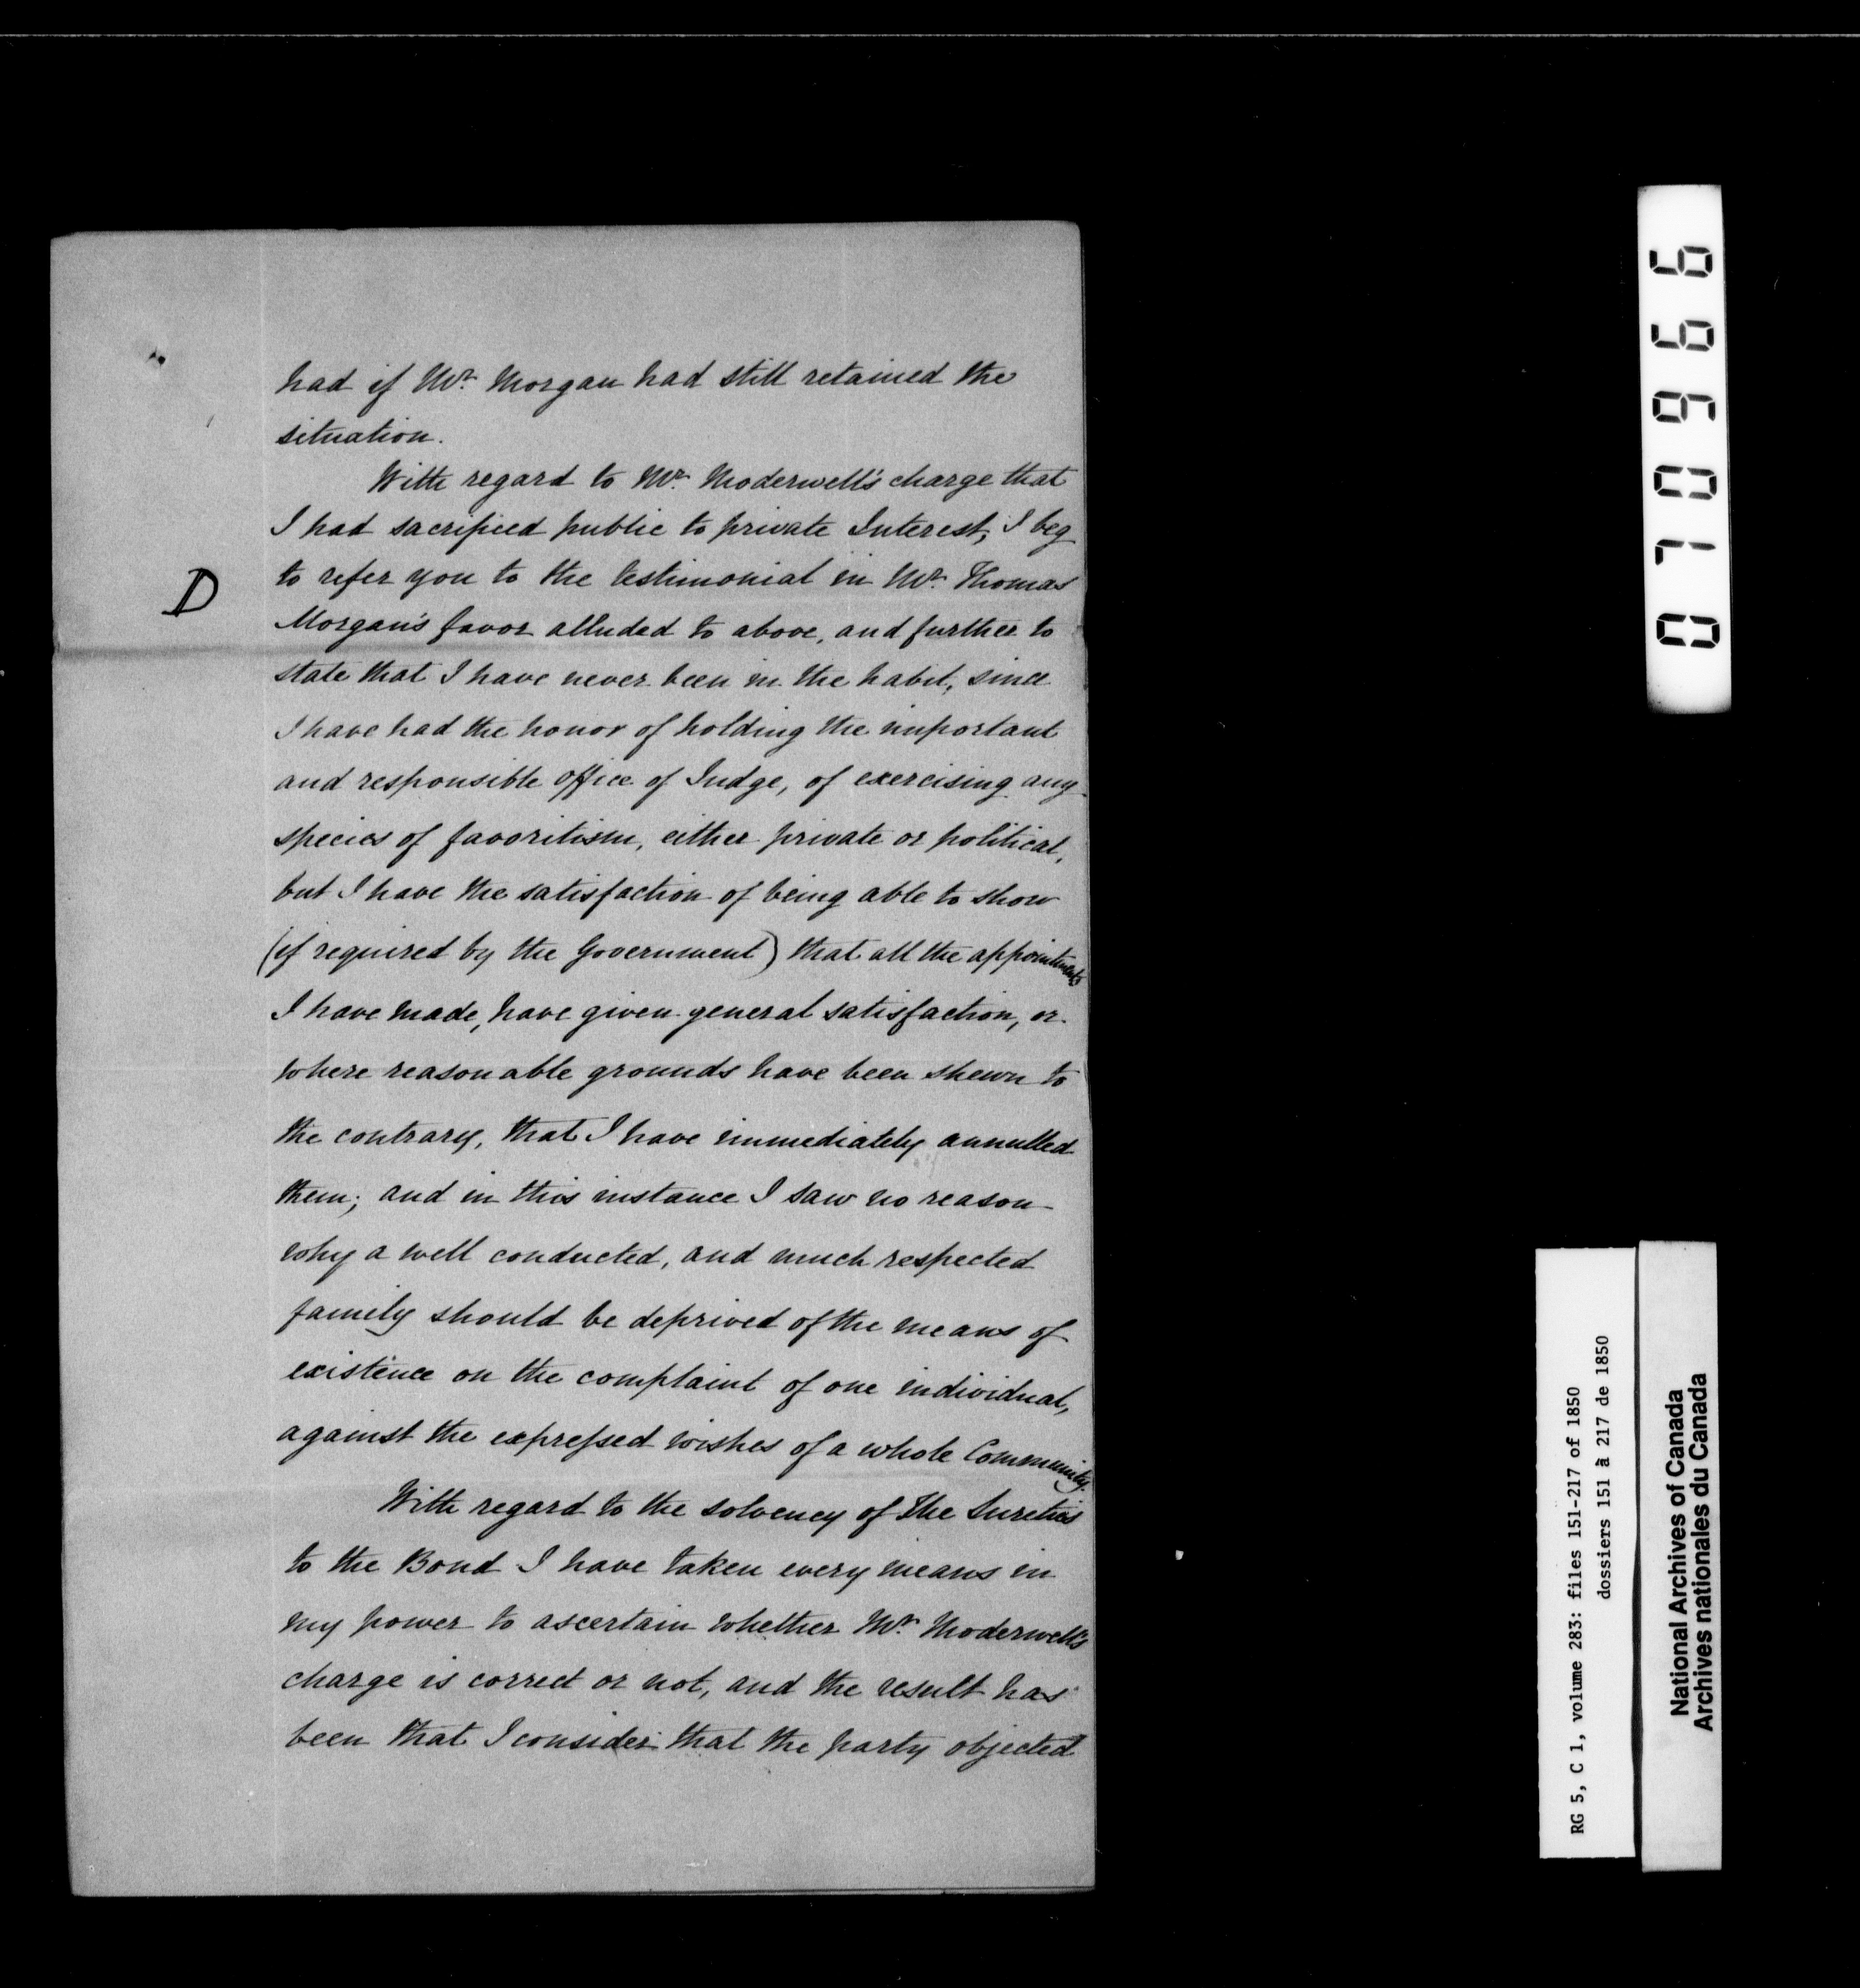 had if Mr. Morgan had still retained the
situation.
With regard to Mr. Moderwell's charge that
I had sacrificed public to private Interest, I beg
D
to refer you to the testimonial in Mr. Thomas
Morgan's favor alluded to above, and further to
state that I have never been in the habit, since
I have had the honor of holding the important
and responsible office of Judge, of exercising any
species of favoritism, either private or political,
but I have the satisfaction of being able to show
(if required by the Government) that all the appointments
I have made, have given general satisfaction, or
where reasonable grounds have been shewn to
the contrary, that I have immediately annulled
them; and in this instance I saw no reason
why a well conducted, and much respected
family should be deprived of the means of
existence on the complaint of one individual,
against the expressed wishes of a whole Community.
With regard to the solvency of the Sureties
to the Bond I have taken every means in
my power to ascertain whether Mr. Moderwell's
charge is correct or not, and the result has
been that I consider that the party objected
070966
RG 5, C 1, volume 283: files 151-217 of 1850
dossiers 151 à 217 de 1850
National Archives of Canada
Archives nationales du Canada